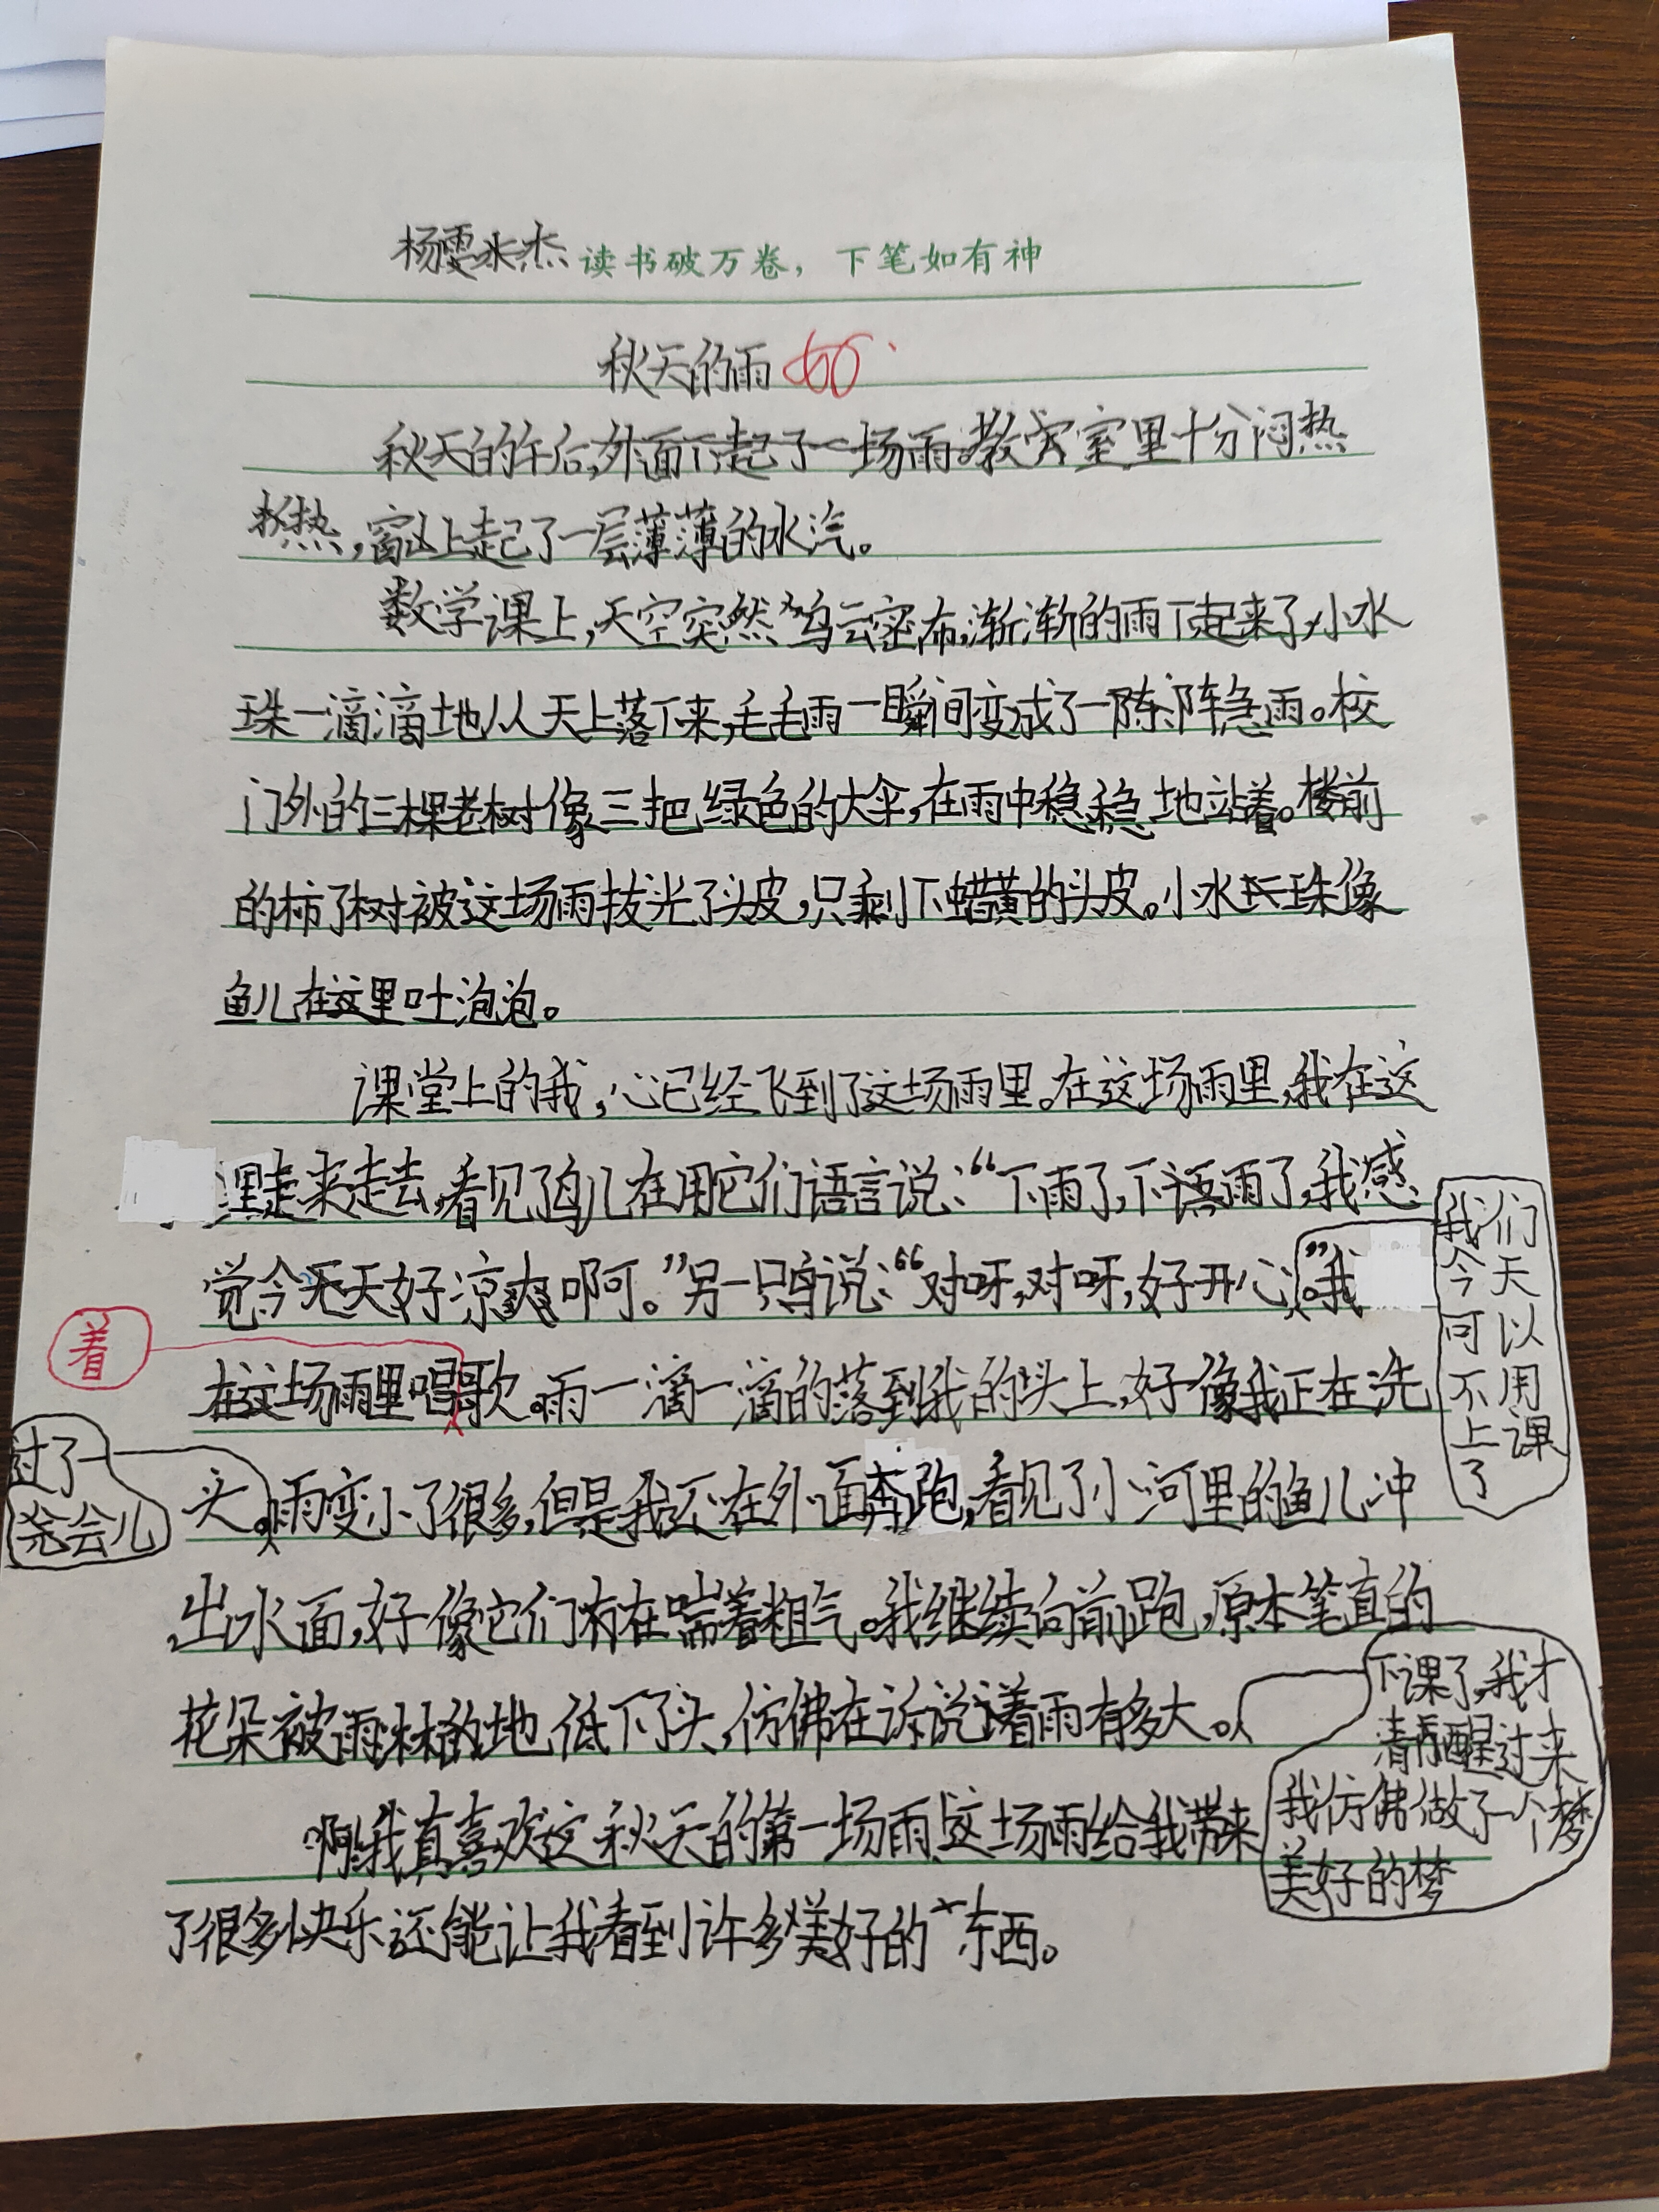 杨雯冰杰 读书破万卷，下笔如有神
秋天的雨
秋天的午后,外面下起了一场雨。教室里十分闷热
,窗上起了一层薄薄的水汽。
数学课上,天空突然乌云密布,渐渐的雨下起来了,小水
珠一滴滴地从天上落下来,毛毛雨一瞬间变成了一阵阵急雨。校
门外的三棵老树像三把绿色的大伞,在雨中稳稳地站着。楼前
的柿子树被这场雨拔光了头皮,只剩下蜡黄的头皮。小水珠像
鱼儿在这里吐泡泡。
课堂上的我,心已经飞到了这场雨里。在这场雨里,我在这
里走来走去,看见了鸟儿在用它们语言说:“下雨了,下雨了,我感
觉今天好凉爽啊。”另一只鸟说:“对呀,对呀,好开心。”我
我们
今天
可以
不用
上课
了
着
在这场雨里唱歌。雨一滴一滴的落到我的头上,好像我正在洗
过了一
会儿
头。雨变小了很多,但是我还在外面奔跑,看见了小河里的鱼儿冲
出水面,好像它们在喘着粗气。我继续向前跑,原本笔直的
花朵被雨淋的地低下了头,仿佛在诉说着雨有多大。
下课了,我才
清醒过来
我仿佛做了一个
美好的梦
啊!我真喜欢这秋天的第一场雨!这场雨给我带来
了很多快乐还能让我看到许多美好的东西。